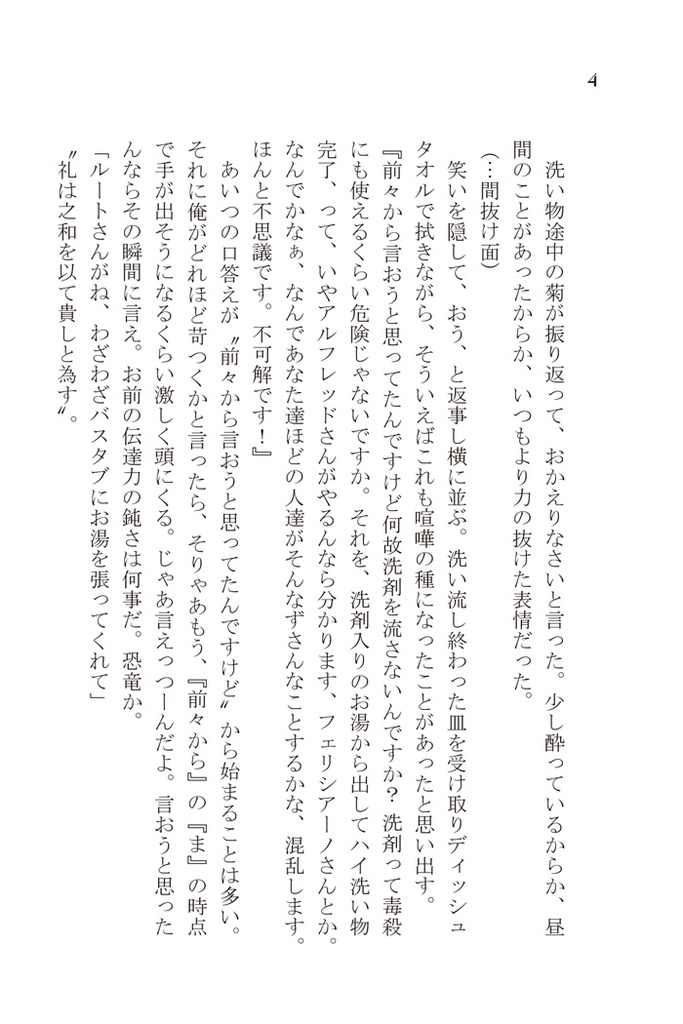 4
洗い物途中の菊が振り返って、おかえりなさいと言った。少し酔っているからか、昼
間のことがあったからか、いつもより力の抜けた表情だった。
(…間抜け面)
笑いを隠して、おう、と返事し横に並ぶ。洗い流し終わった皿を受け取りディッシュ
タオルで拭きながら、そういえばこれも喧嘩の種になったことがあったと思い出す。
『前々から言おうと思ってたんですけど何故洗剤を流さないんですか？洗剤って毒殺
にも使えるくらい危険じゃないですか。それを、洗剤入りのお湯から出してハイ洗い物
完了、って、いやアルフレッドさんがやるんなら分かります、フェリシアーノさんとか。
なんでかなぁ、なんであなた達ほどの人達がそんなずさんなことするかな、混乱します。
ほんと不思議です。不可解です！』
あいつの口答えが〝前々から言おうと思ってたんですけど〟から始まることは多い。
それに俺がどれほど苛つくかと言ったら、そりゃあもう、『前々から』の『ま』の時点
で手が出そうになるくらい激しく頭にくる。じゃあ言えっつーんだよ。言おうと思った
んならその瞬間に言え。お前の伝達力の鈍さは何事だ。恐竜か。
「ルートさんがね、わざわざバスタブにお湯を張ってくれて」
〝礼は之和を以て貴しと為す〟。